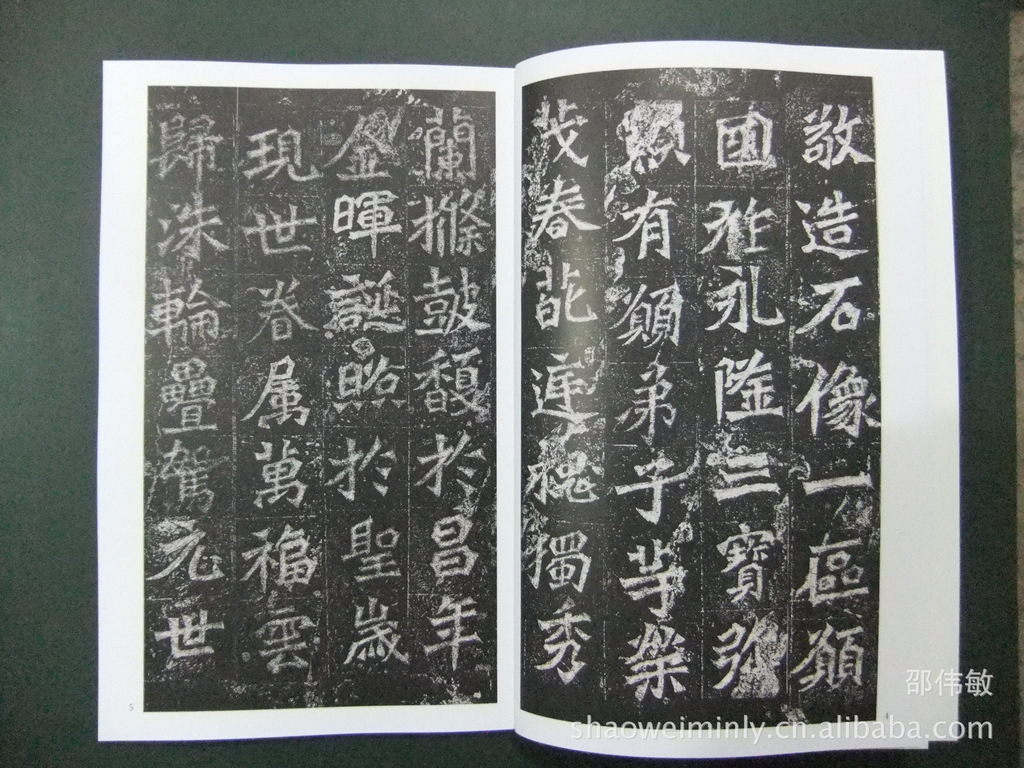 敬造石像一區願
國祚永隆三寶弥
顯有願弟子等榮
茂春葩庭槐獨秀
蘭條鼓馥於昌年
金暉誕照於聖歲
現世眷属萬福雲
歸洙輪疊駕元世
5
邵伟敏
shaoweiminly.cn.alibaba.com